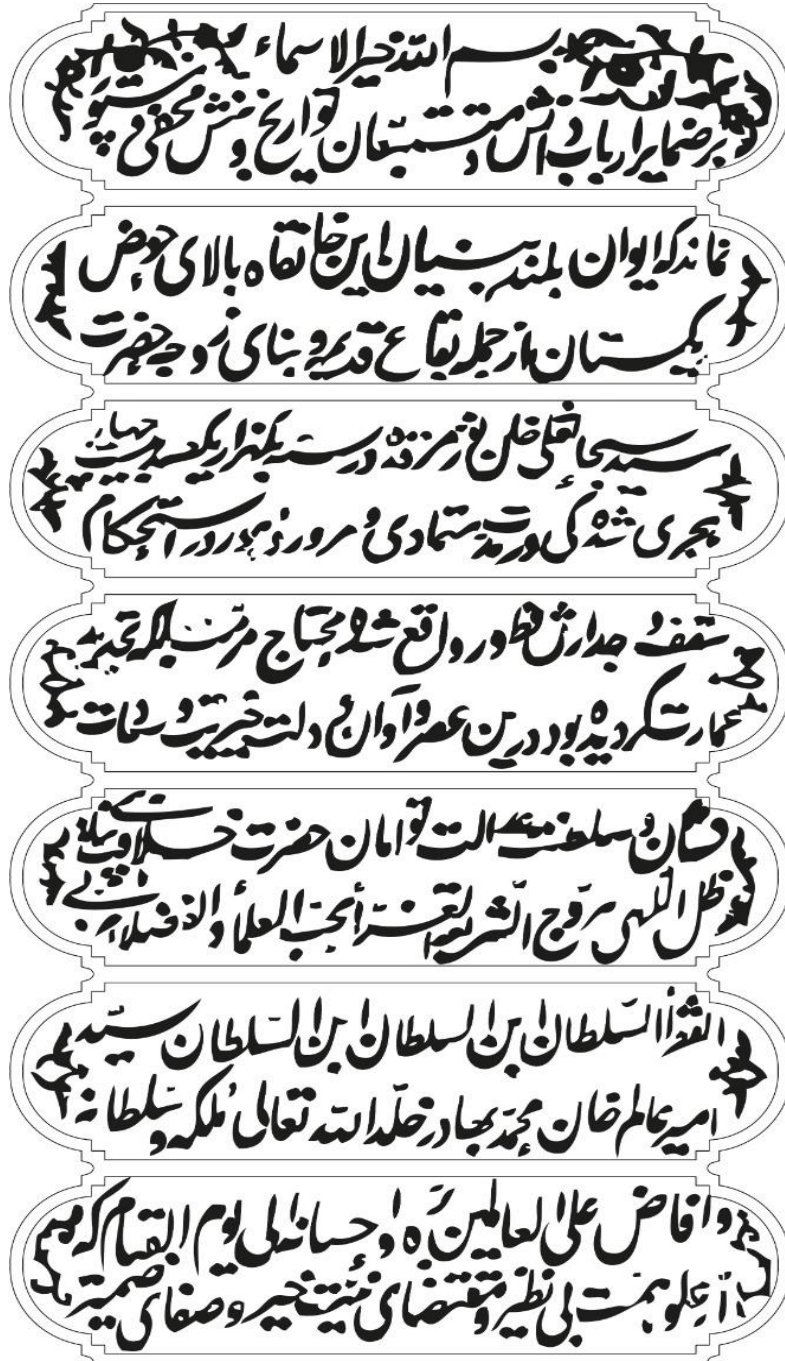 بسم الله خیر الاسماء
بر ضمایر ارباب دانش و متتبعان تواریخ و بینش مخفی و مستور
نماند که ایوان بلند بنیان این خانقاه بالای حوض
یکمستان از جمله بقاع قدیمه و بنای زوجه حضرت
سید سبحانقلی خان نور مرقده در سنه یکهزار یکصد بیست چهار
هجری شده کی در مدت متمادی و مرور دهور در استحکام
سقف و جدارش فطور واقع شده محتاج مرمت بلکه تجدید
عمارت گردیده بود درین عصر و آوان دولت خیریت و سمات
و سلطنت عدالت توامان حضرت خلافت پناهی
ظل اللهی مروج الشریعة الغرا محب العلماء و الفضلاء مربی
الفقرا السلطان ابن السلطان ابن السلطان سید
امیر عالم خان محمد بهادر خلد الله تعالی ملکه و سلطانه
و افاض علی العالمین بره و احسانه الی یوم القیام که
از علو همت بی نظیر و مقتضای نیت خیر و صفای ضمیر